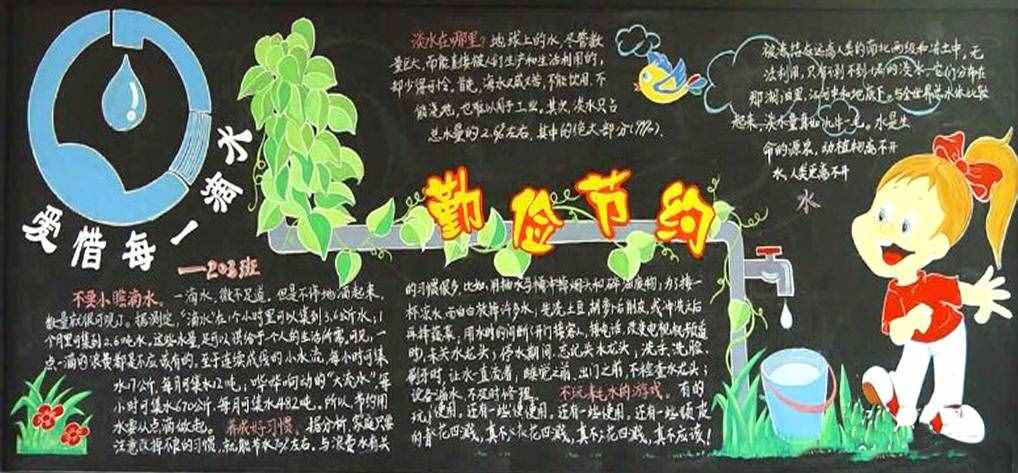 爱惜每一滴水
淡水在哪里？地球上的水，尽管数
量巨大，而能直接被人们生产和生活利用的，
却少得可怜。首先，海水又咸又苦，不能饮用，不
能浇地，也难以用于工业。其次，淡水只占
总水量的2.6%左右，其中的绝大部分(99%)，
被冻结在远离人类的南北两极和冻土中，无
法利用，只有不到
的淡水，它们分布在
湖泊里、江河中和地底下。与全世界总水体比较
起来，淡水量真如
水是生
命的源泉，动植物离不开
水，人类更离不开
水
勤俭节约
——203班
不要小瞧滴水。一滴水，微不足道。但是不停地滴起来，
数量就很可观了。据测定，“滴水”在1个小时里可以集到3.6公斤水；1
个月里可集到2.6吨水。这些水量，足可以供给一个人的生活所需。可见，一
点一滴的浪费都是不应该有的。至于连续成线的小水流，每小时可集
水17公斤，每月可集水12吨；哗哗响动的“大流水”，每
小时可集水670公斤，每月可集水482吨。所以，节约用
水要从点滴做起。 养成好习惯。据分析，家庭只要
注意改掉不良的习惯，就能节水70%左右。与浪费水有关
的习惯很多，比如：用抽水马桶冲掉烟头和碎细废物；为了接一
杯凉水，而白白放掉许多水；先洗土豆、胡萝卜后削皮，或冲洗后
再择蔬菜；用水时的间断（开门接客人，接电话，改变电视机频道
时），未关水龙头；停水期间，忘记关水龙头；洗手、洗脸、
刷牙时，让水一直流着；睡觉之前、出门之前，不检查水龙头；
设备漏水，不及时修理。 不玩耗水的游戏。有的
玩
使用，还有一些使使用，还有一些使用，还有一些顽皮
的
花四溅，真不
花四溅，真不
花四溅，真不应该！